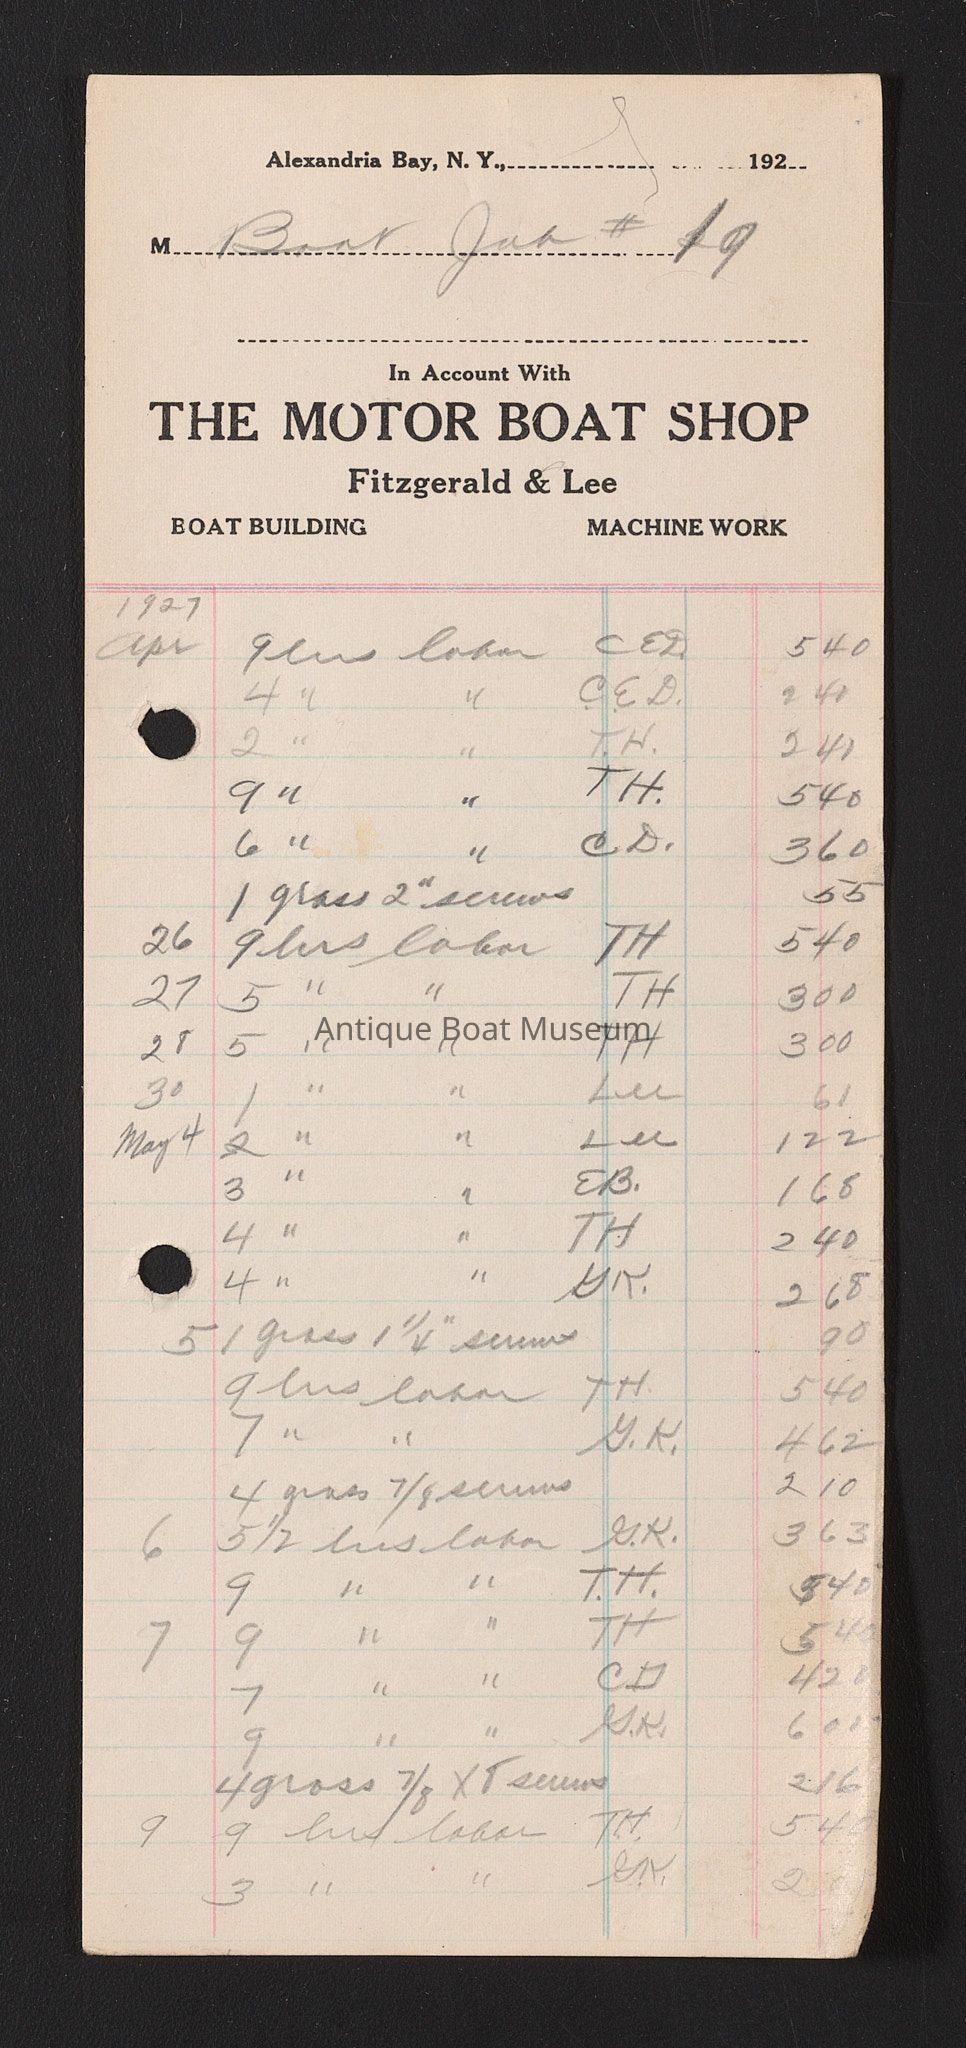 Alexandria Bay, N. Y., 192
M Boat Job # 19
In Account With
THE MOTOR BOAT SHOP
Fitzgerald & Lee
BOAT BUILDING MACHINE WORK
1927
Apr 9 hrs labor C E D. 5 40
4 " " C. E. D. 2 40
2 " " T. H. 2 40
9 " " T H. 5 40
6 " " C. D. 3 60
1 gross 2" screws 55
26 9 hrs labor TH 5 40
27 5 " " TH 3 00
28 5 " " TH 3 00
Antique Boat Museum
30 1 " " Lee 61
May 4 2 " " Lee 1 22
3 " " EB. 1 68
4 " " TH 2 40
4 " " G.K. 2 68
5 1 gross 1 1/4" screws 90
9 hrs labor TH. 5 40
7 " " G. K. 4 62
4 gross 7/8 screws 2 10
6 5 1/2 hrs labor G.K. 3 63
9 " " T. H. 5 40
7 9 " " TH 5 40
7 " " CD 4 20
9 " " G.K. 6
4 gross 7/8 X 8 screws 2 16
9 9 hrs labor T.H. 5 40
3 " " G.K. 2